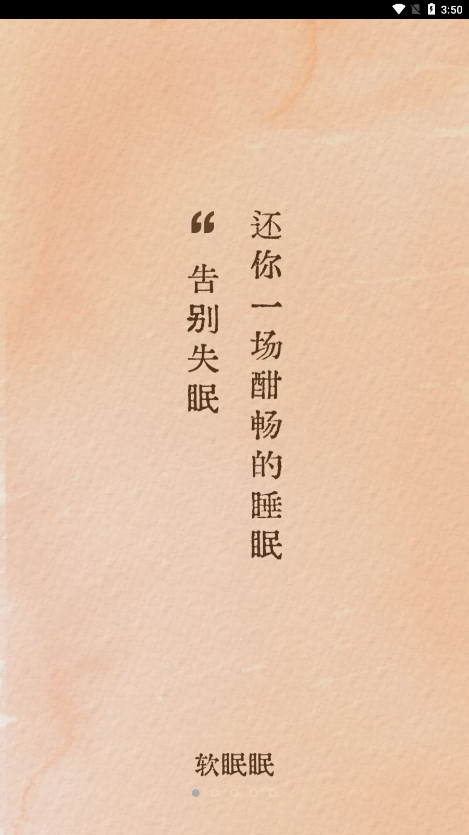 3:50
“告别失眠
还你一场酣畅的睡眠
软眠眠